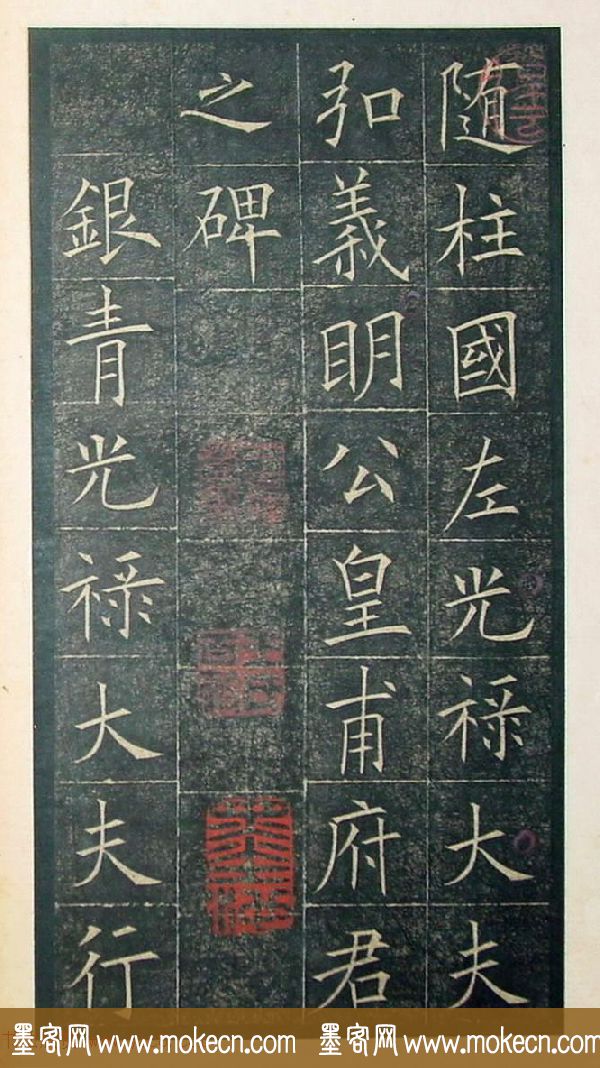 随柱國左光祿大夫
弘義明公皇甫府君
之碑
銀青光祿大夫行
墨客网 www.mokecn.com 墨客网 www.mokecn.com